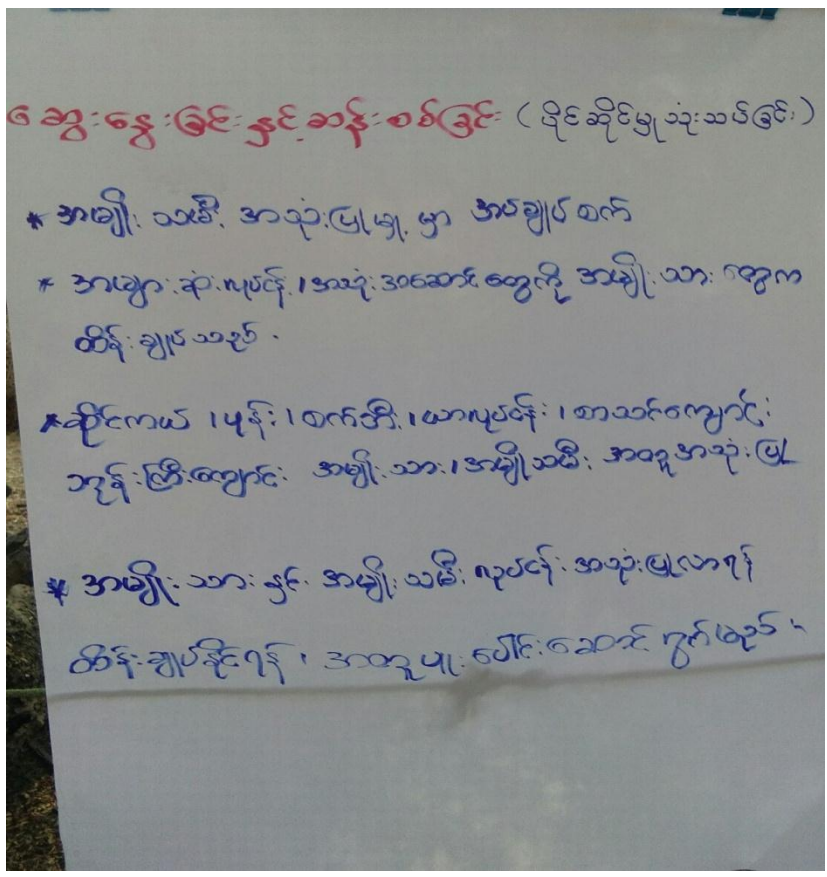 ဆွေးနွေးခြင်းနှင့်ဆန်းစစ်ခြင်း (ပိုင်ဆိုင်မှုသုံးသပ်ခြင်း)
* အမျိုးသမီး အသုံးပြုမှု မှာ အပ်ချုပ်စက်
* အများဆုံးလုပ်ငန်း၊ အသုံးအဆောင်တွေကို အမျိုးသားတွေက
ထိန်းချုပ်သည်.
* ဆိုင်ကယ်၊ ဖုန်း၊ စက်ဘီး၊ ယာလုပ်ငန်း၊ စာသင်ကျောင်း
ဘုန်းကြီးကျောင်း အမျိုးသား၊ အမျိုသမီး အတူအသုံးပြု
* အမျိုးသားနှင့် အမျိုးသမီး လုပ်ငန်းအသုံးပြုလာရန်
ထိန်းချုပ်နိုင်ရန်၊ အတူပူးပေါင်းဆောင်ရွက်မည်။